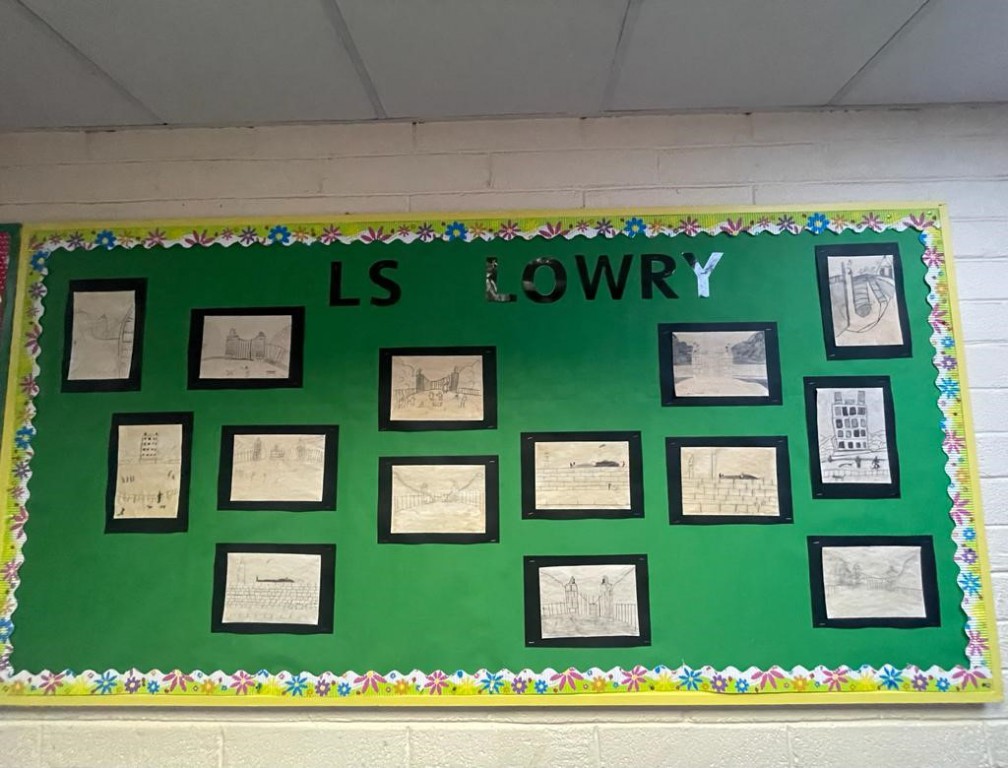 LS LOWRY